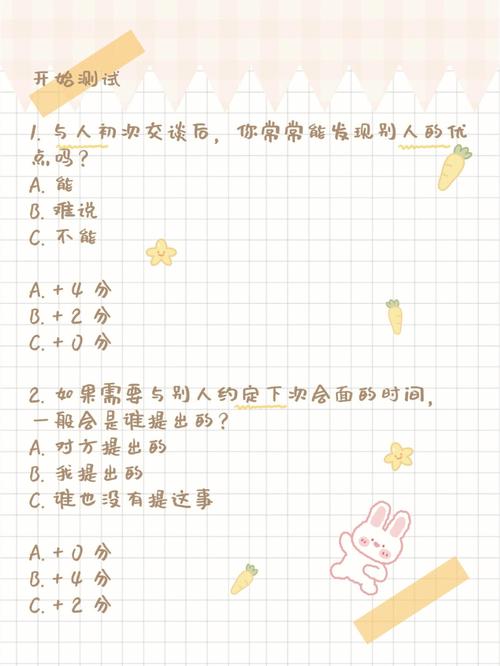 开始测试
1. 与人初次交谈后，你常常能发现别人的优
点吗？
A. 能
B. 难说
C. 不能
A. + 4 分
B. + 2 分
C. + 0 分
2. 如果需要与别人约定下次会面的时间，
一般会是谁提出的？
A. 对方提出的
B. 我提出的
C. 谁也没有提这事
A. + 0 分
B. + 4 分
C. + 2 分